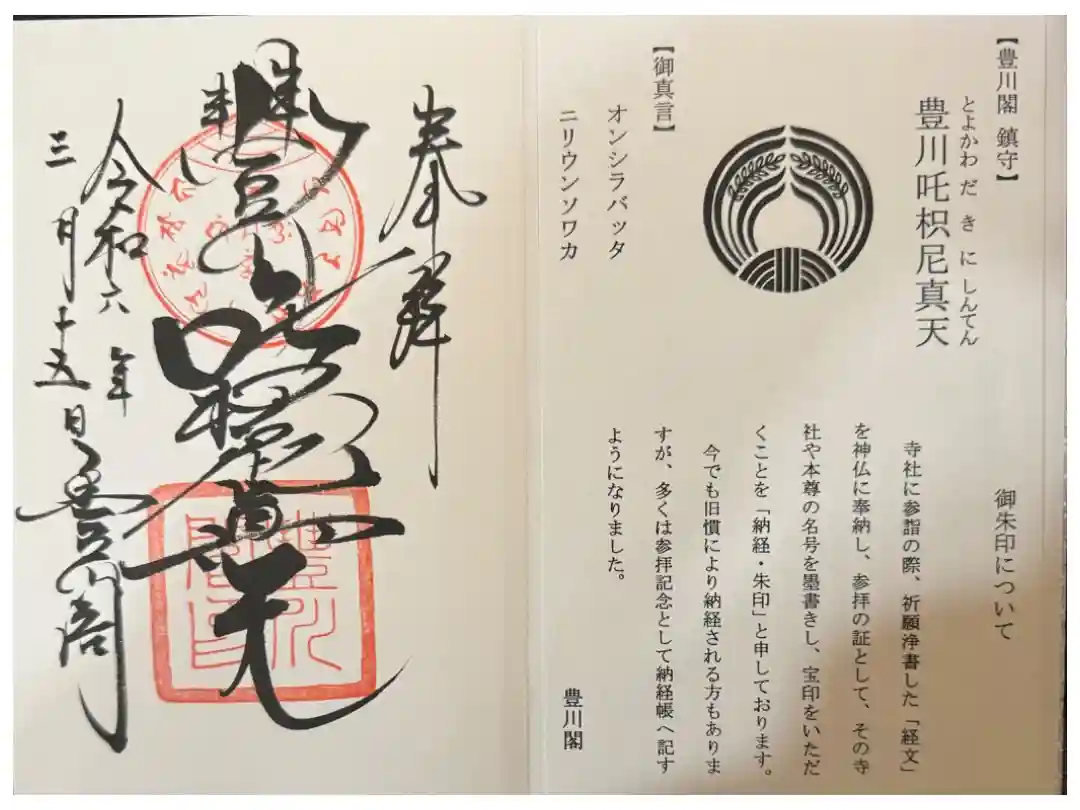 【豊川閣 鎮守】
とよかわだきにしんてん
豊川吒枳尼真天
【御真言】
オンシラバッタ
ニリウンソワカ
御朱印について
寺社に参詣の際、祈願浄書した「経文」
を神仏に奉納し、参拝の証として、その寺
社や本尊の名号を墨書きし、宝印をいただ
くことを「納経・朱印」と申しております。
今でも旧慣により納経される方もありま
すが、多くは参拝記念として納経帳へ記す
ようになりました。
豊川閣
奉拝
豊川吒枳尼真天
令和六年
三月十五日 豊川閣